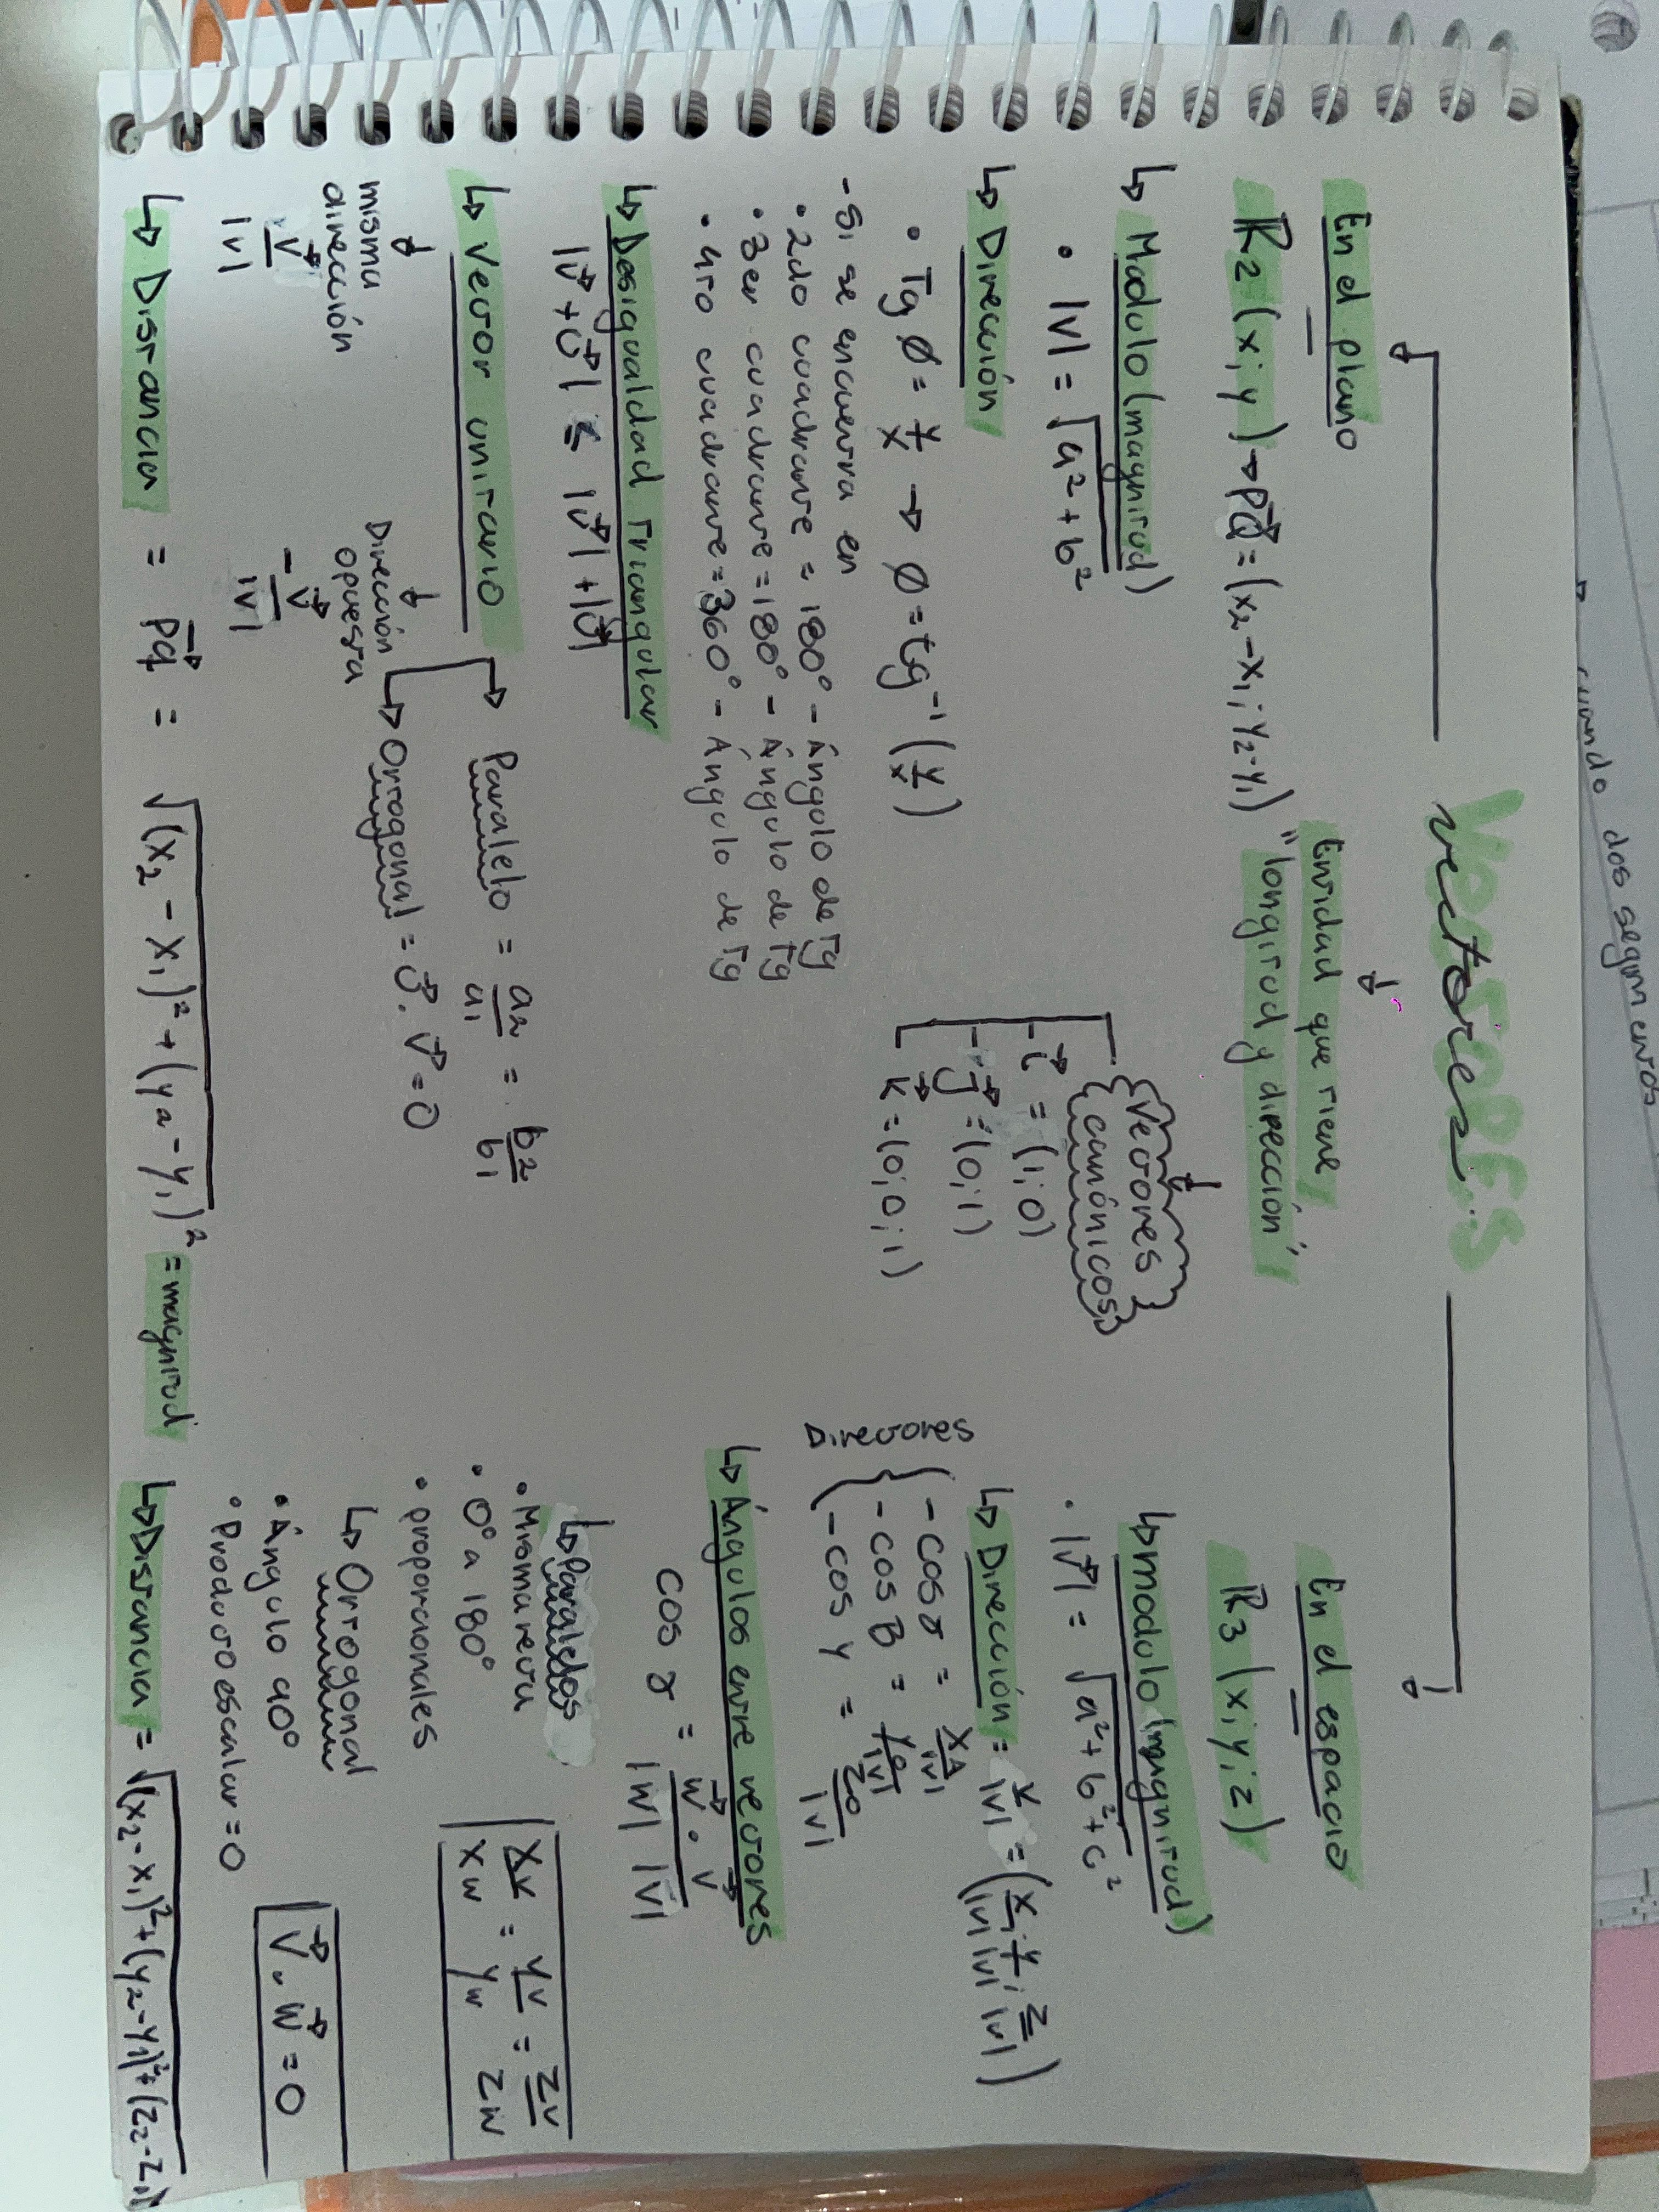 vectores
Entidad que tiene
"longitud y dirección"
En el plano
R2 (x; y) → PQ = (x2 - x1; y2 - y1)
↳ Modulo (magnitud)
• |v| = √a² + b²
↳ Dirección
• Tg Ø = y/x → Ø = tg⁻¹ (y/x)
- Si se encuentra en
• 2do cuadrante = 180° - Ángulo de Tg
• 3er cuadrante = 180° - Ángulo de Tg
• 4to cuadrante = 360° - Ángulo de Tg
↳ Desigualdad triangular
|v + u| ≤ |v| + |u|
↳ Vector unitario
misma
dirección
v/|v|
Dirección
opuesta
- v/|v|
Paralelo = a2/a1 = b2/b1
Ortogonal = u . v = 0
↳ Distancia = pq = √(x2 - x1)² + (y2 - y1)² = magnitud
Vectores
canónicos
- i = (1; 0)
- j = (0; 1)
k = (0; 0; 1)
En el espacio
R3 (x; y; z)
↳ modulo (magnitud)
• |v| = √a² + b² + c²
↳ Dirección = v/|v| = (x/|v|; y/|v|; z/|v|)
Directores
- cos γ =
- cos B =
- cos y =
↳ Ángulos entre vectores
cos γ = w . v / |w| |v|
↳ Paralelos
• Misma recta
• 0° a 180°
• proporcionales
xv/xw = yv/yw = zv/zw
↳ Ortogonal
• Ángulo 90°
• Producto escalar = 0
v . w = 0
↳ Distancia = √(x2 - x1)² + (y2 - y1)² + (z2 - z1)
cuando dos segmentos